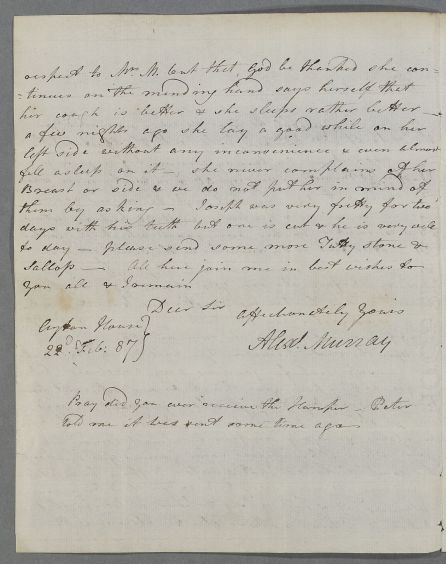 respect to Mrs. M. but that, God be thanked she con=
=tinues on the mending hand says herself that
her cough is better & she sleeps rather better —
a few nights ago she lay a good while on her
left side without any inconvenience & even almost
fell asleep on it — she never complains of her
Breast or side & we do not put her in mind of
them by asking — Joseph was very fretty for two
days with his teeth but one is cut & he is very well
to day — please send some more Tutty stone &
Sallop — All here join me in best wishes to
you all & I remain
Dear Sir affectionately Yours
Ayton House }
22d. Feb: 87 } Alexr. Murray
Pray did you ever receive the Hamper — Peter
told me it was sent some time ago